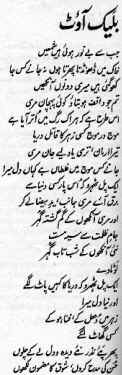 بلیک آؤٹ
جب سے بے نور ہوئی ہیں شمعیں
خاک میں ڈھونڈتا پھرتا ہوں نہ جانے کس جا
کھو گئی ہیں میری دونوں آنکھیں
تم جو واقف ہو بتاؤ کوئی پہچان مری
اس طرح ہے کہ ہر اک رگ میں اُتر آیا ہے
موج در موج کسی زہر کا قاتل دریا
تیرا ارمان، تری یاد لیے جان مری
جانے کس موج میں غلطاں ہے کہاں دل میرا
ایک پل ٹھہرو کہ اُس پار کسی دنیا سے
برق آئے مری جانب، یدِ بیضا لے کر
اور مری آنکھوں کے گم گشتہ گہر
جامِ ظلمت سے سیہ مست
نئی آنکھوں کے شب تاب گہر
لوٹا دے
ایک پل ٹھہرو کہ دریا کا کہیں پاٹ لگے
اور نیا دل میرا
زہر میں دھل کے، فنا ہو کے
کسی گھاٹ لگے
پھر پئے نذر نئے دیدہ و دل لے کے چلوں
حسن کی مدح کروں، شوق کا مضمون لکھوں